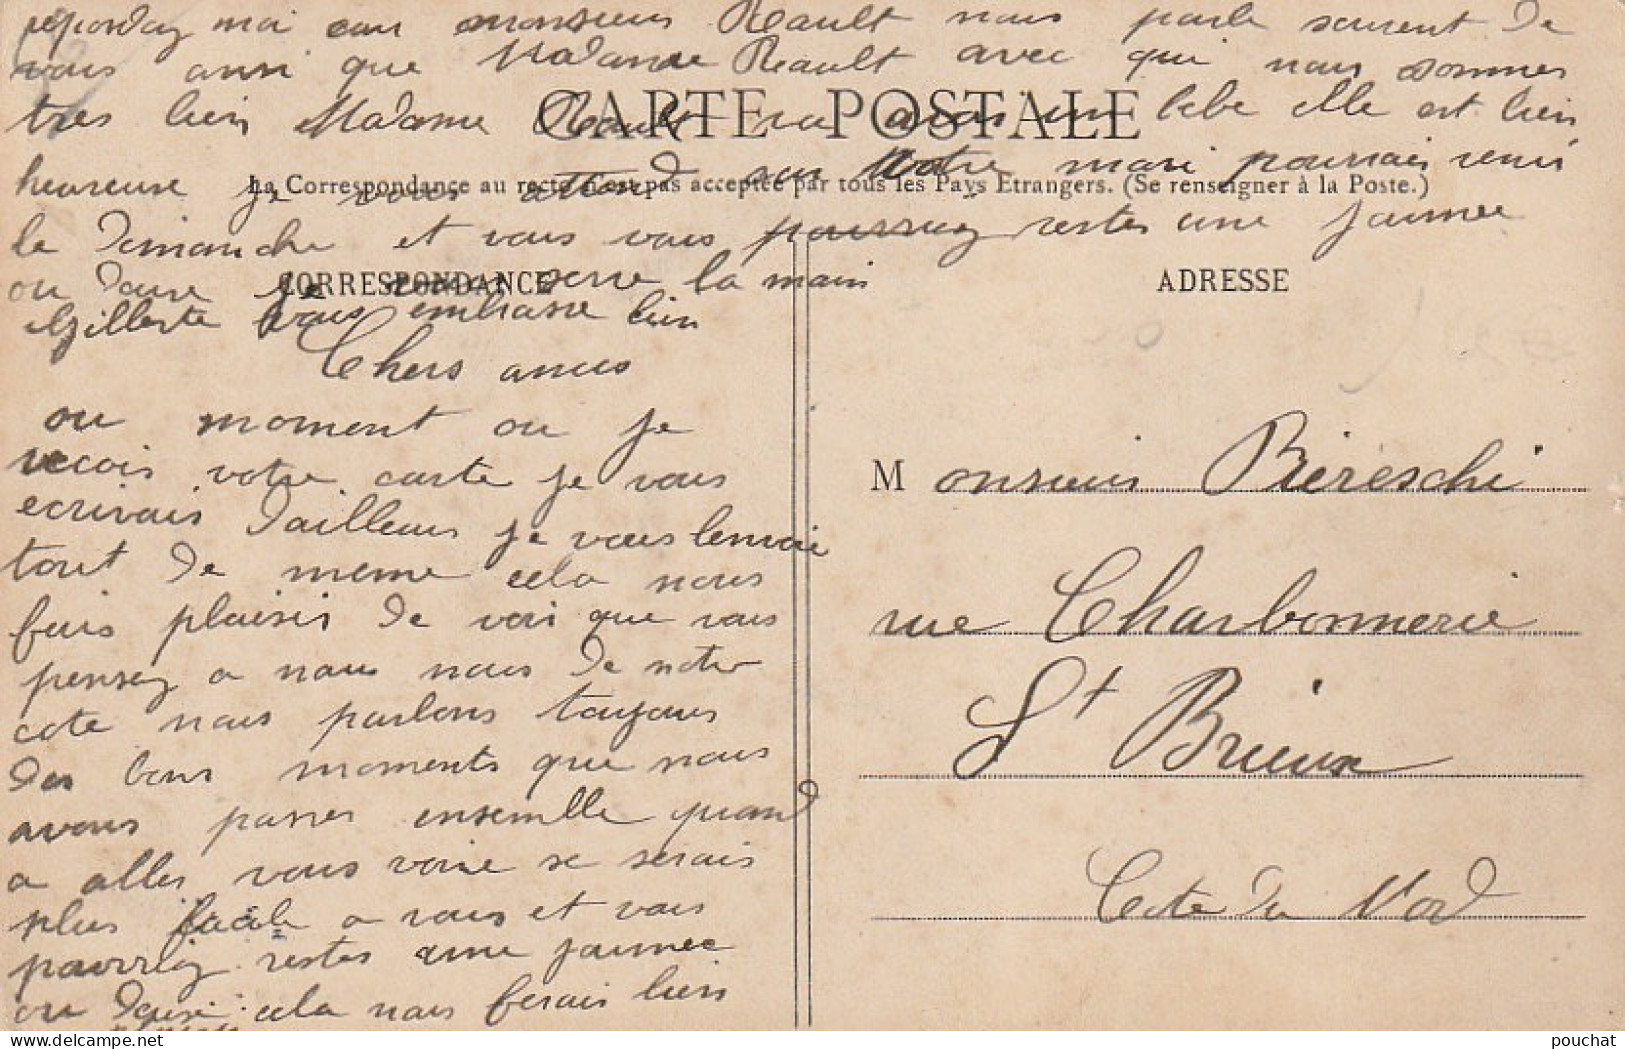 repondez moi car monsieur Reault nous parle souvent de
vous ainsi que Madame Reault avec qui nous sommes
tres bien Madame Reault va avoir un bebe elle est bien
CARTE POSTALE
heureuse je vous attend car Votre mari pourrais venir
La Correspondance au recto n'est pas acceptée par tous les Pays Etrangers. (Se renseigner à la Poste.)
le dimanche et vous vous pourriez restes une journee
ou deux je vous serre la main
Gilberte vous embrasse bien
CORRESPONDANCE
Chers amies
ou moment ou je
recois votre carte je vous
ecrivais dailleurs je vous lenvoie
tout de meme cela nous
fais plaisir de voir que vous
pensez a nous nous de notre
cote nous parlons toujours
des bons moments que nous
avons passes ensemble quand
a aller vous voire se serais
plus facile a vous et vous
pourriez restes une journee
ou deux cela nous ferais bien
plaisir
ADRESSE
Monsieur Biereschi
rue Charbonnerie
St Brieux
Cote du Nord
delcampe.net
pouchat